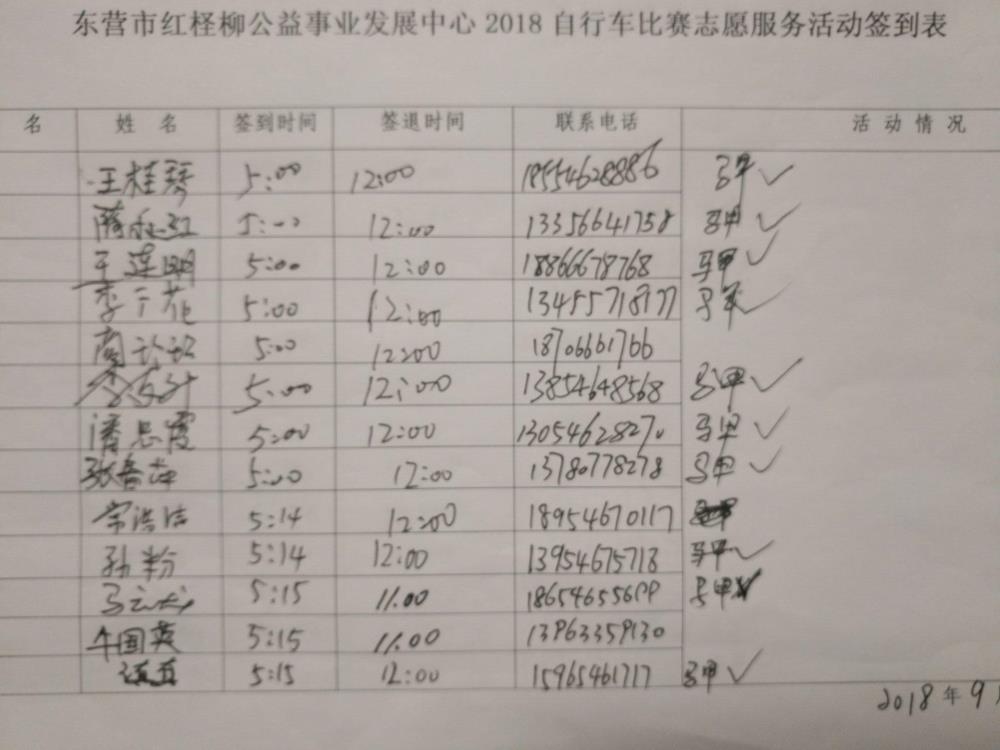 东营市红柽柳公益事业发展中心 2018 自行车比赛志愿服务活动签到表
名 姓 名 签到时间 签退时间 联系电话 活 动 情 况
王桂琴 5:00 12:00 18554628886 马甲 ✓
5:00 12:00 13356641758 马甲 ✓
王莲明 5:00 12:00 18866678768 马甲 ✓
李于花 5:00 12:00 13455718177 马甲 ✓
5:00 12:00 18706661766
5:00 12:00 13854648568 马甲 ✓
潘思霞 5:00 12:00 13054628270 马甲 ✓
5:00 12:00 13780778278 马甲 ✓
宋洪洁 5:14 12:00 18954670117
孙粉 5:14 12:00 13954675718 马甲 ✓
5:15 11:00 马甲
牛国英 5:15 11:00 13963359130
5:15 12:00 15965461717 马甲 ✓
2018 年 9